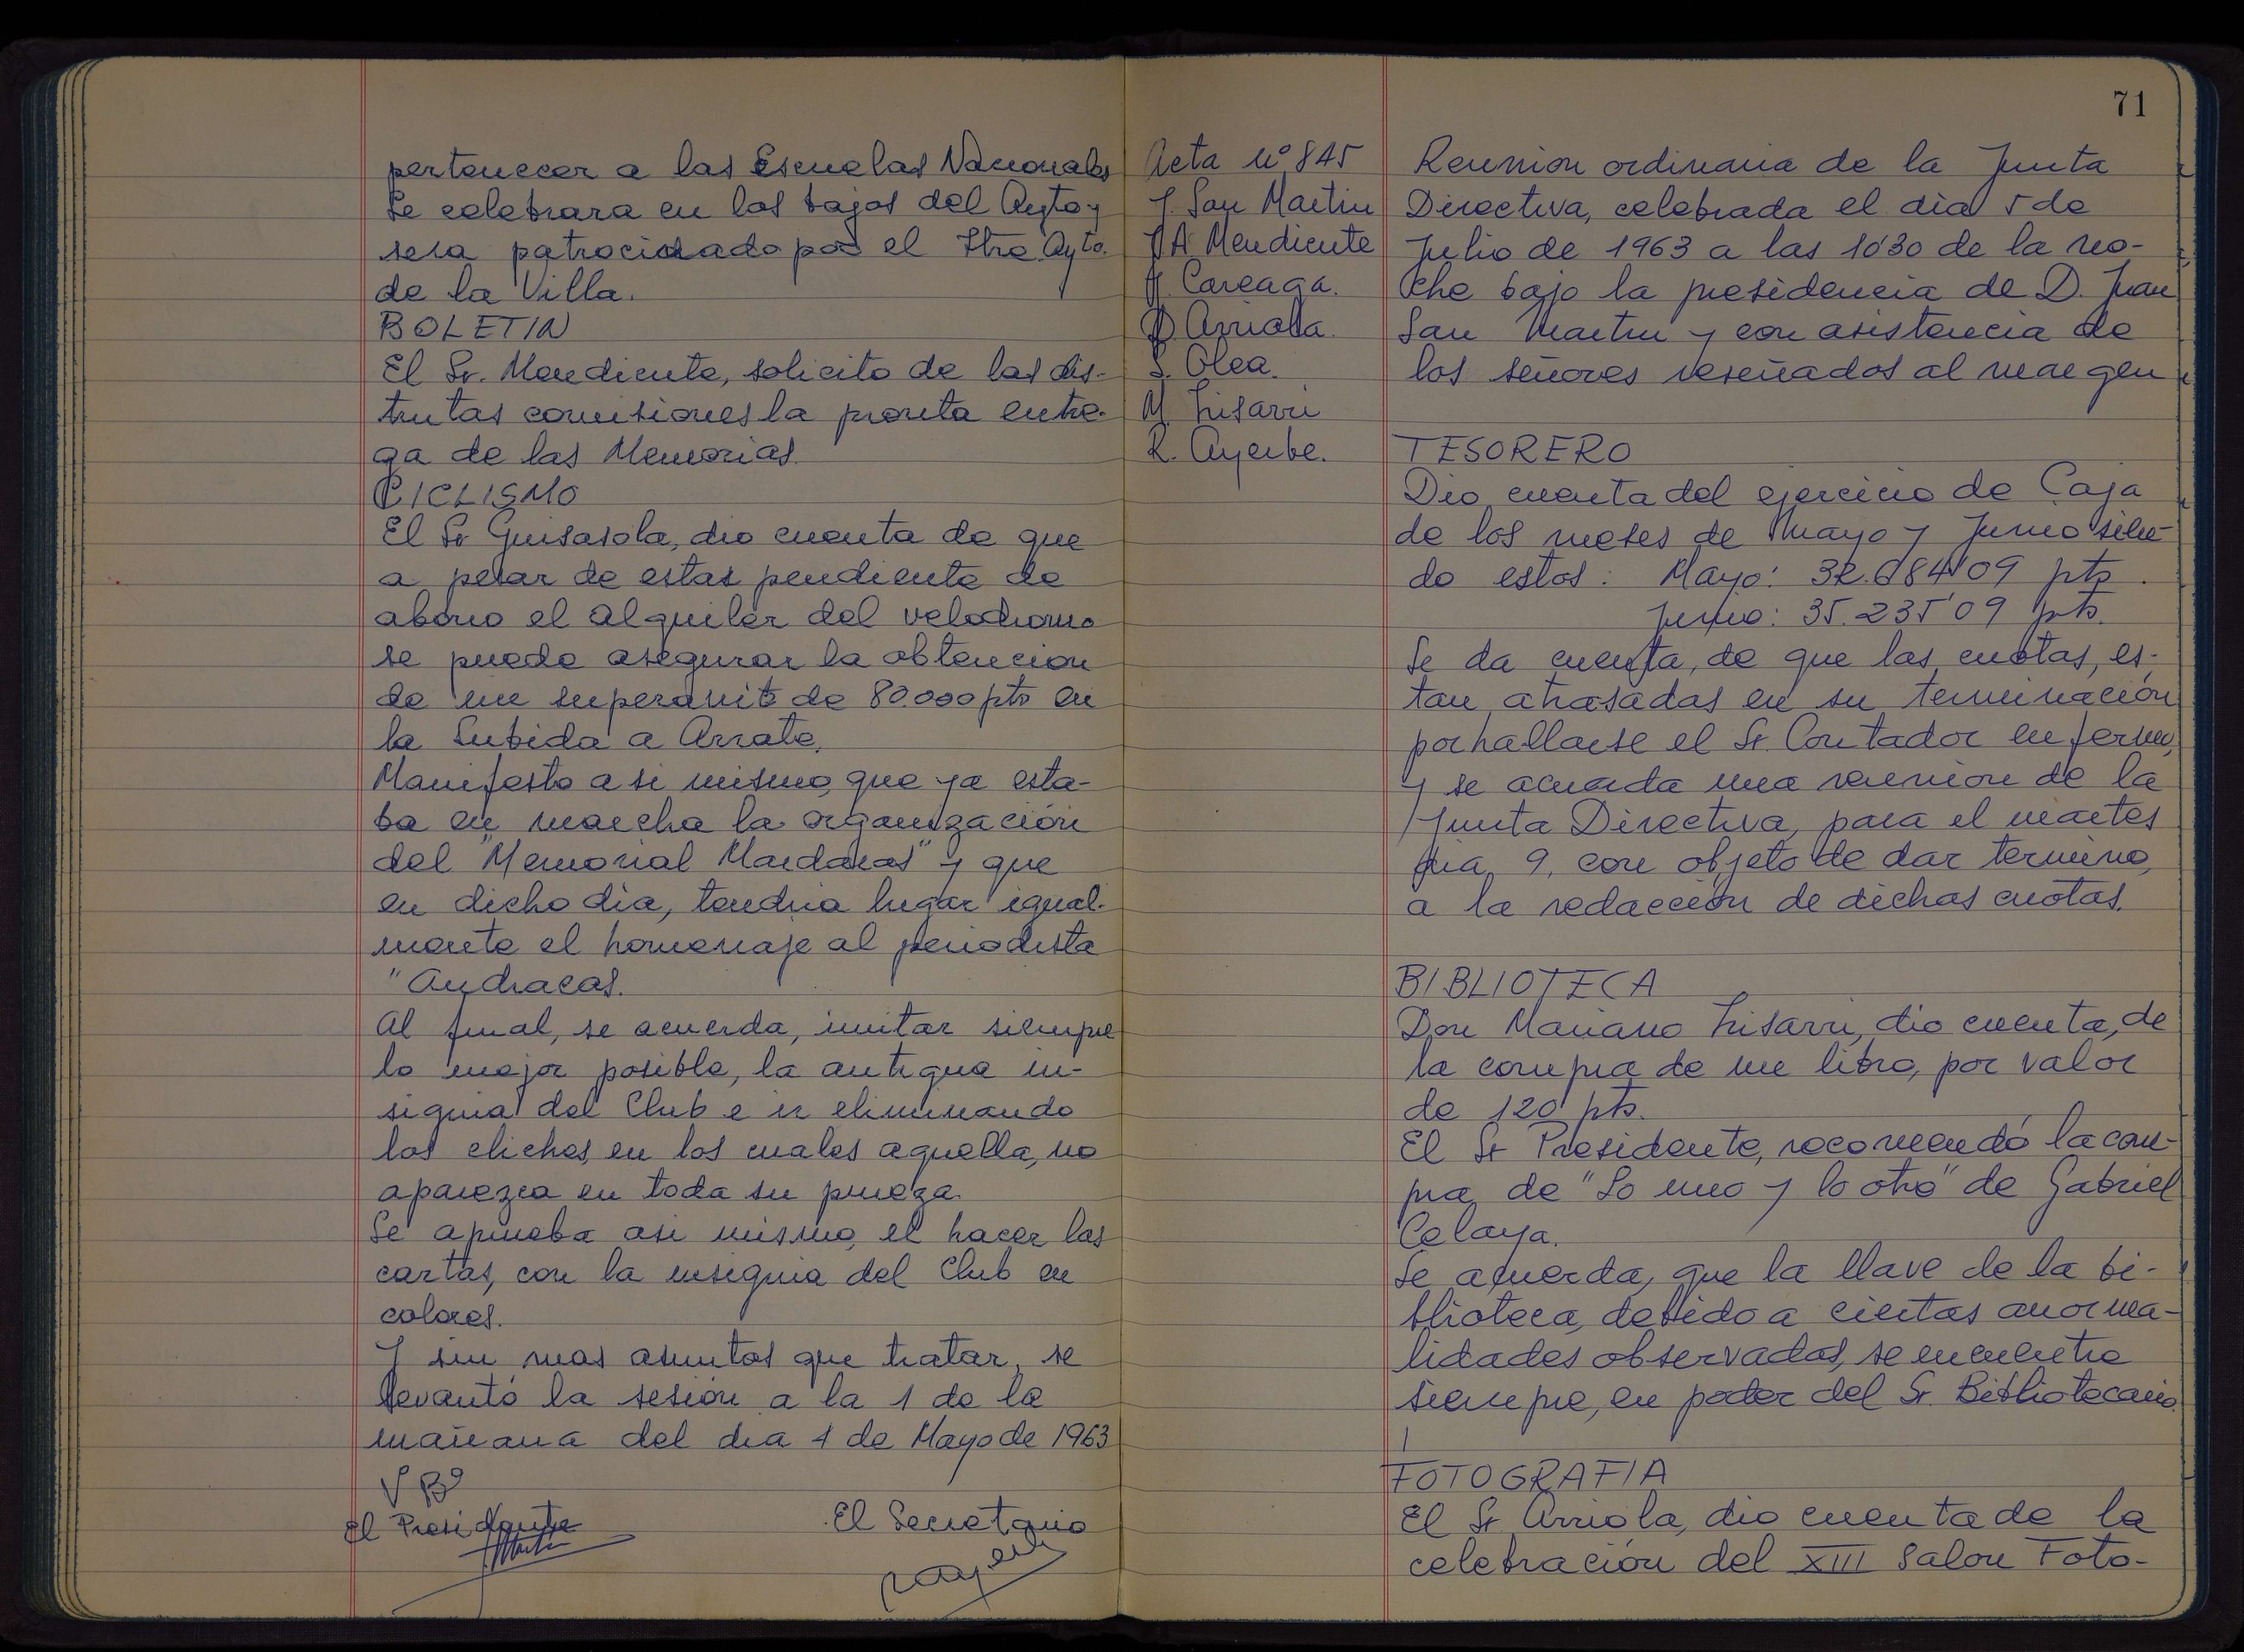 pertenecer a las Escuelas Nacionales
Se celebrara en los bajos del Ayto y
sera patrocinado por el Iltre. Ayto.
de la Villa.
BOLETIN
El Sr. Mendicute, solicito de las dis-
tintas comisiones la pronta entre-
ga de las Memorias.
CICLISMO
El Sr Guisasola, dio cuenta de que
a pesar de estar pendiente de
abono el alquiler del velodromo
se puede asegurar la obtencion
de un superavit de 80.000 pts en
la Subida a Arrate.
Manifesto a si mismo, que ya esta-
ba en marcha la organización
del "Memorial Mardaras" y que
en dicho dia, tendria lugar igual-
mente el homenaje al periodista
"Andracas.
Al final, se acuerda, imitar siempre
lo mejor posible, la antigua in-
signia del Club e ir eliminando
los cliches, en los cuales aquella, no
aparezca en toda su pureza.
Se aprueba asi mismo, el hacer las
cartas, con la insignia del Club en
colores.
Y sin mas asuntos que tratar, se
levantó la sesión a la 1 de la
mañana del dia 1 de Mayo de 1963
Vº Bº
El Presidente
El Secretario
71
Acta nº 845
J. San Martin
J A Mendicute
Careaga.
Arriola.
S. Olea.
M. Lisarri
R. Ayerbe.
Reunion ordinaria de la Junta
Directiva, celebrada el dia 5 de
Julio de 1963 a las 10'30 de la no-
che bajo la presidencia de D. Juan
San Martin y con asistencia de
los señores reseñados al margen
TESORERO
Dio cuenta del ejercicio de Caja
de los meses de Mayo y Junio sien-
do estos: Mayo: 09 pts.
Junio: 35.235'09 pts.
Se da cuenta, de que las cuotas, es-
tan atrasadas en su terminación
por hallarse el Sr. Contador enfermo,
y se acuerda una reunion de la
Junta Directiva, para el martes
dia, 9, con objeto de dar termino,
a la redacción de dichas cuotas.
BIBLIOTECA
Don Mariano Lisarri, dio cuenta, de
la compra de un libro, por valor
de 120 pts.
El Sr Presidente, recomendó la com-
pra, de "Lo uno y lo otro" de Gabriel
Celaya.
Se acuerda, que la llave de la bi-
blioteca, debido a ciertas anorma-
lidades observadas, se encuentre
siempre, en poder del Sr. Bibliotecario.
FOTOGRAFIA
El Sr Arriola, dio cuenta de la
celebración del XIII Salon Foto-